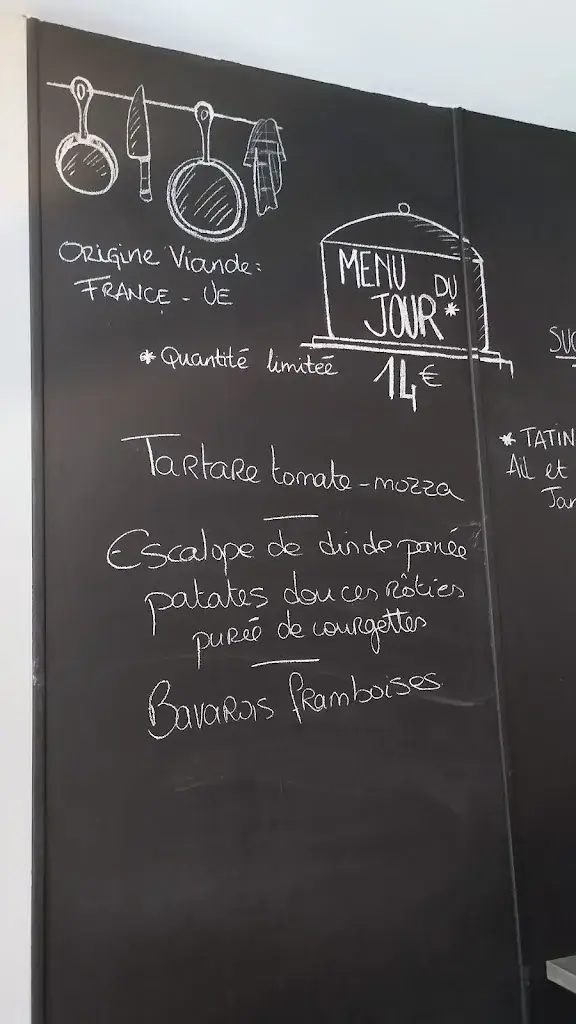 Origine Viande:
FRANCE - UE
MENU
DU
JOUR*
* Quantité limitée
14€
Tartare tomate-mozza
Escalope de dinde panée
patates douces rôties
purée de courgettes
Bavarois framboises
SUG
* TATIN
Ail et